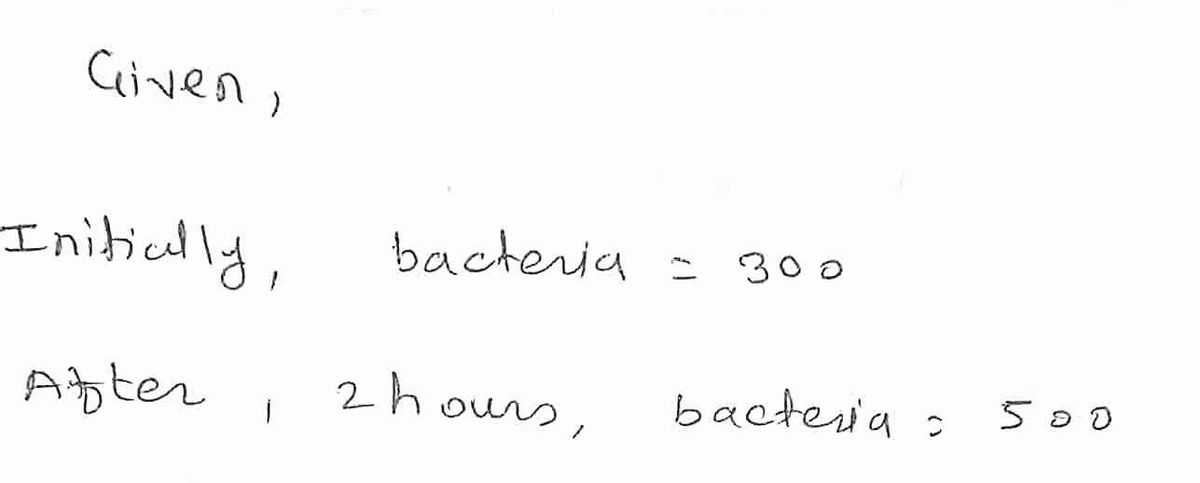 Given,
Initially, bacteria = 300
After, 2 hours, bacteria = 500